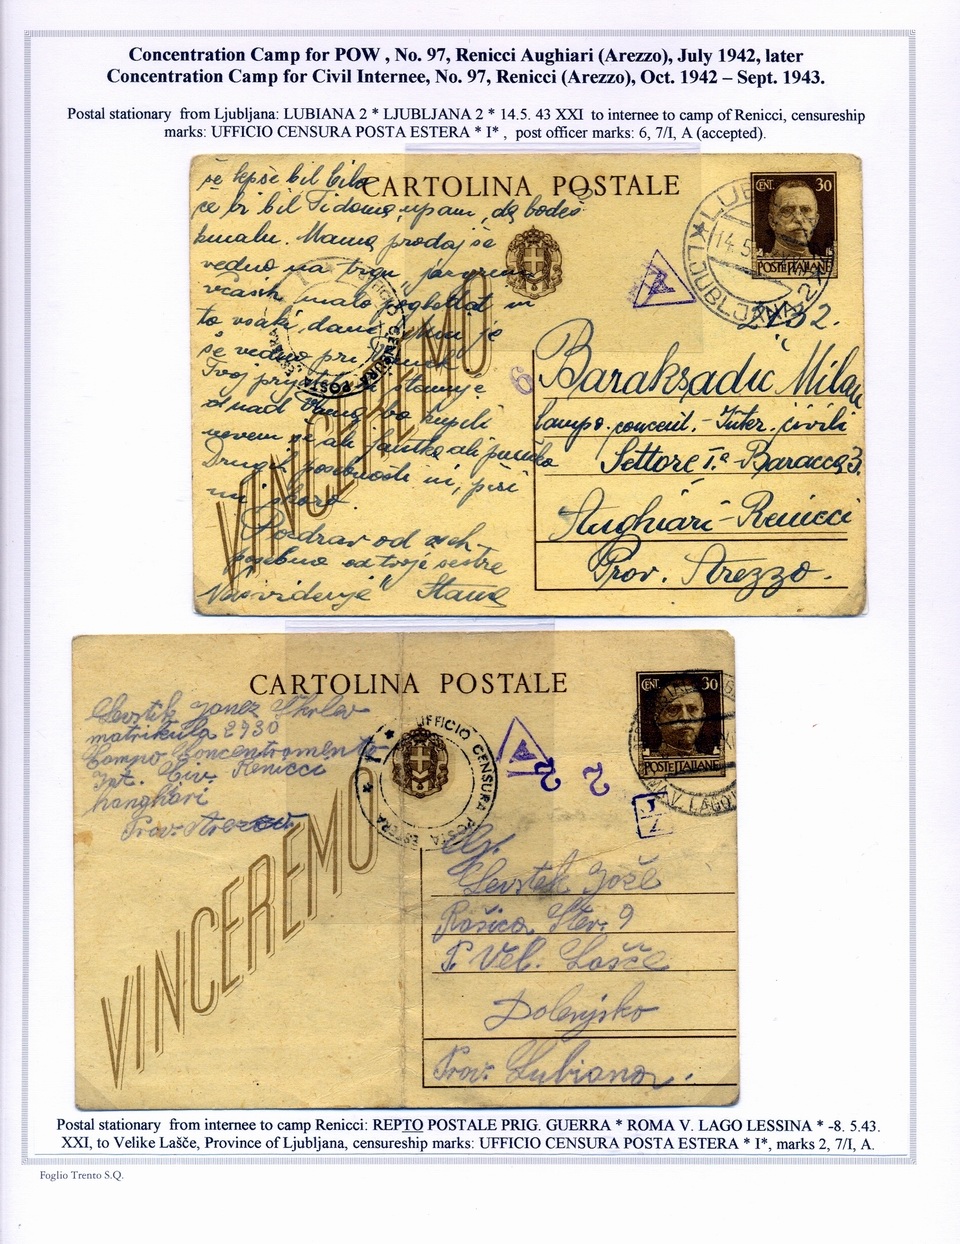 Concentration Camp for POW , No. 97, Renicci Aughiari (Arezzo), July 1942, later
Concentration Camp for Civil Internee, No. 97, Renicci (Arezzo), Oct. 1942 – Sept. 1943.
Postal stationary from Ljubljana: LUBIANA 2 * LJUBLJANA 2 * 14.5. 43 XXI to internee to camp of Renicci, censureship
marks: UFFICIO CENSURA POSTA ESTERA * I* , post officer marks: 6, 7/I, A (accepted).
CARTOLINA POSTALE
CENT. 30
POSTE ITALIANE
LJUBLJANA 2
14.5
UFFICIO CENSURA POSTA ESTERA
VINCEREMO
6
še lepše bil bilo
če bi bil Ti doma, upam, da bodeš
kmalu. Mama prodaja še
vedno na trgu
včasih malo pogledat in
to vsaki dan
še vedno pri
Tvoj
kupili
nevem če ali fantka ali punčko
Drugih posebnosti ni, piši
mi skoro.
Pozdrav od vseh
posebno od tvoje sestre
Nasvidenje" Stana
Baraksadić Milan
Campo concent. - Inter. civili
Settore I.º - Baracca 3.
Anghiari - Renicci
Prov. Arezzo.
CARTOLINA POSTALE
CENT. 30
POSTE ITALIANE
Levstik Janez Škrlev
matrikula 2930
Campo Concentramento
Int. Civ. Renicci
hanghiari
Prov. Arezzo
* I * UFFICIO CENSURA POSTA ESTERA
A
2
2
V. LAGO
VINCEREMO
Levstek Jože
Rašica Štev. 9
P. Vel. Lašče
Dolenjsko
Prov. Lubiana.
Postal stationary from internee to camp Renicci: REPTO POSTALE PRIG. GUERRA * ROMA V. LAGO LESSINA * -8. 5.43.
XXI, to Velike Lašče, Province of Ljubljana, censureship marks: UFFICIO CENSURA POSTA ESTERA * I*, marks 2, 7/I, A.
Foglio Trento S.Q.